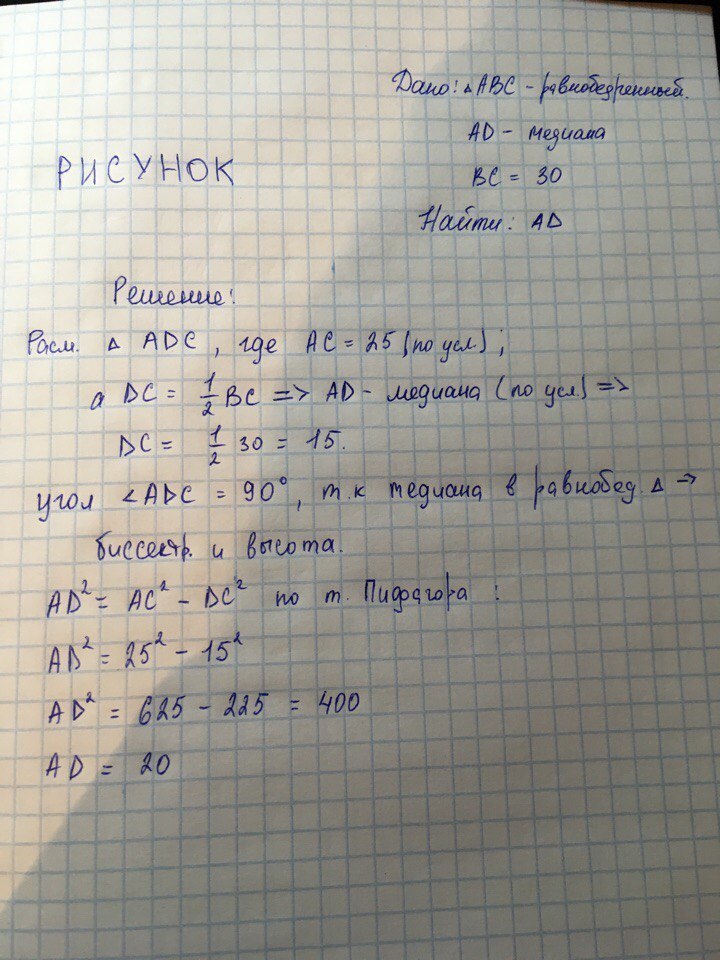 Дано: △ ABC - равнобедренный.
AD - медиана
РИСУНОК
BC = 30
Найти: AD
Решение:
Расм. △ ADC, где AC = 25 (по усл.);
а DC = 1/2 BC => AD - медиана (по усл.) =>
DC = 1/2 30 = 15.
угол ∠ADC = 90°, т.к медиана в равнобед. △ →
биссектр. и высота.
AD² = AC² - DC² по т. Пифагора :
AD² = 25² - 15²
AD² = 625 - 225 = 400
AD = 20